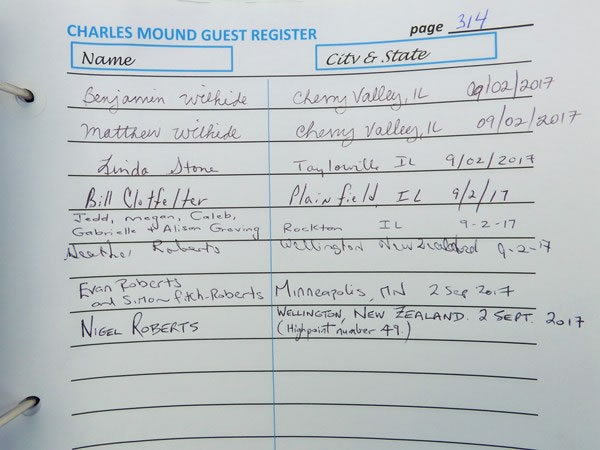 CHARLES MOUND GUEST REGISTER page 314
Name City & State
Benjamin Wilhide Cherry Valley, IL 09/02/2017
Matthew Wilhide Cherry Valley, IL 09/02/2017
Linda Stone Taylorville IL 9/02/2017
Bill Clotfelter Plainfield IL 9/2/17
Jedd, Megan, Caleb,
Gabrielle + Alison Greving Rockton IL 9-2-17
Heather Roberts Wellington New Zealand 9-2-17
Evan Roberts
and Simon Fitch-Roberts Minneapolis, MN 2 Sep 2017
NIGEL ROBERTS WELLINGTON, NEW ZEALAND. 2 SEPT. 2017
(Highpoint number 49.)